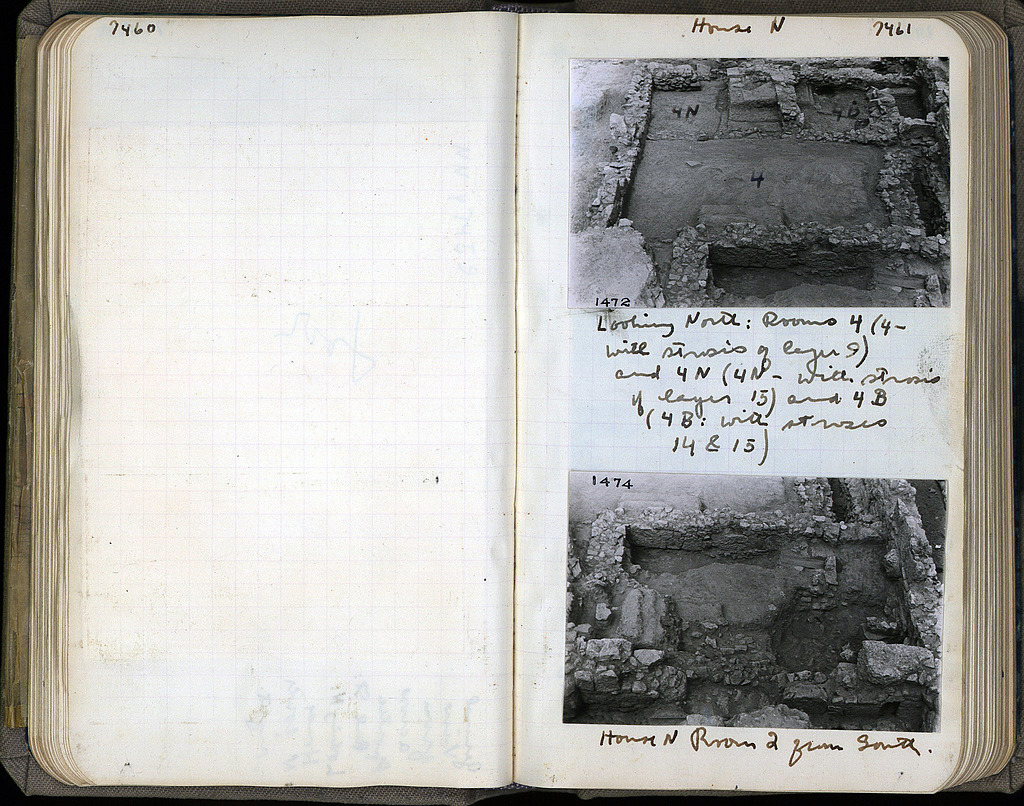 7460
House N 7461
4N 4B
4
1472
Looking North: Rooms 4 (4-
with strosis of layer 9)
and 4N (4N - with strosis
of layer 15) and 4B
(4B: with stroses
14 & 15)
1474
House N Room 2 from South.